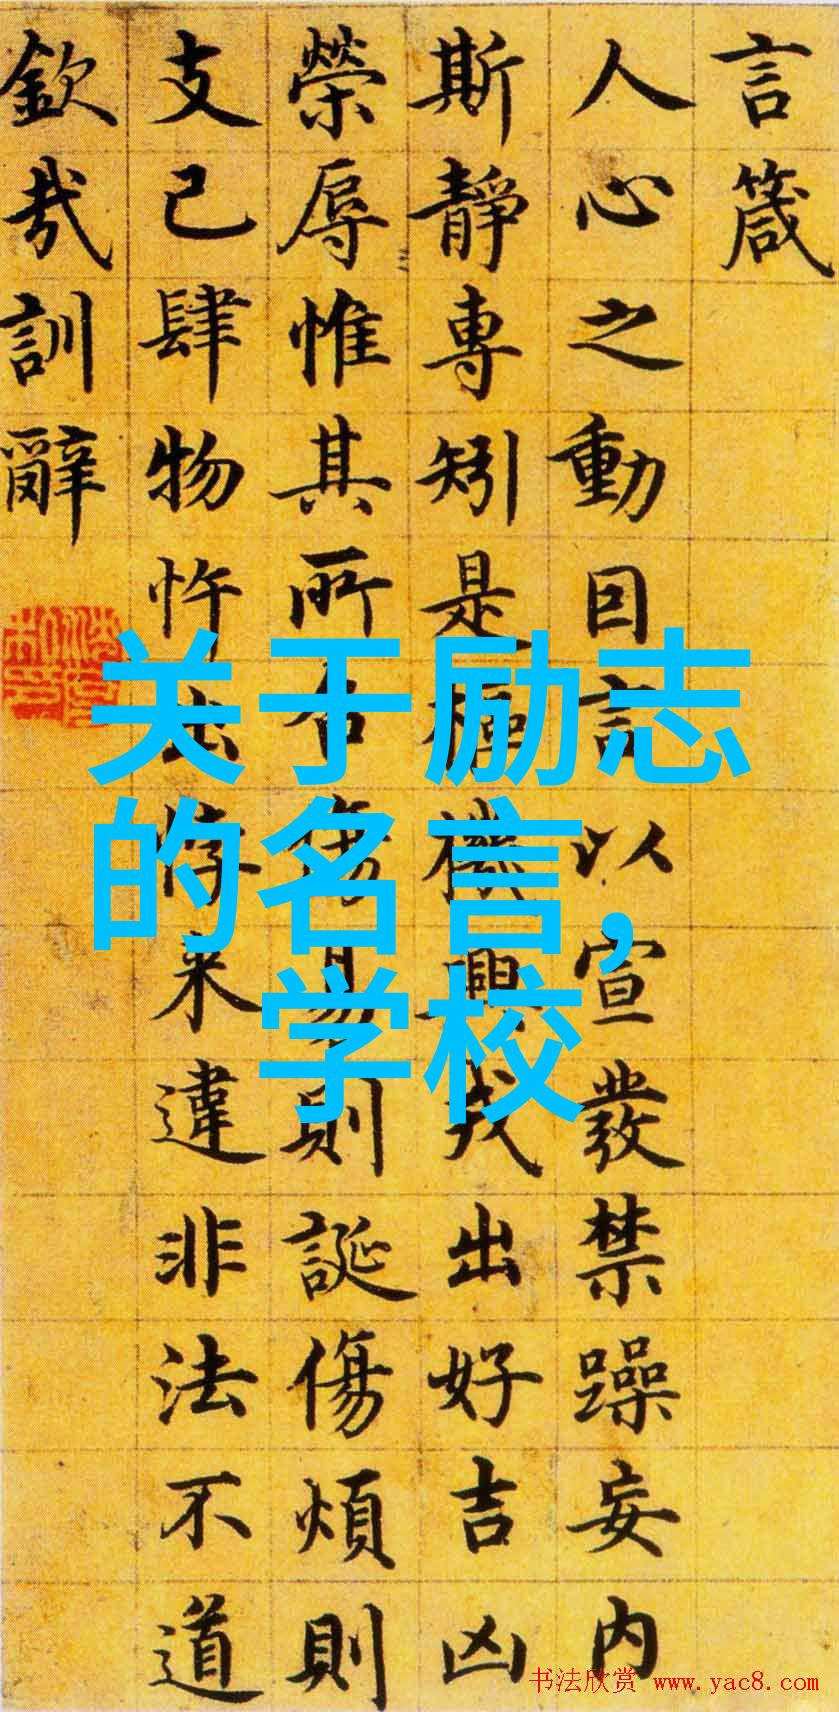 言箴
人心之動因言以宣發禁躁妄内
斯靜專矧是樞機興戎出好吉凶
榮辱惟其所召傷易則誕傷煩則
支己肆物忤出悖来違非法不道
欽哉訓辭
关于励志
的名言,
学校
书法欣赏 www.yac8.com